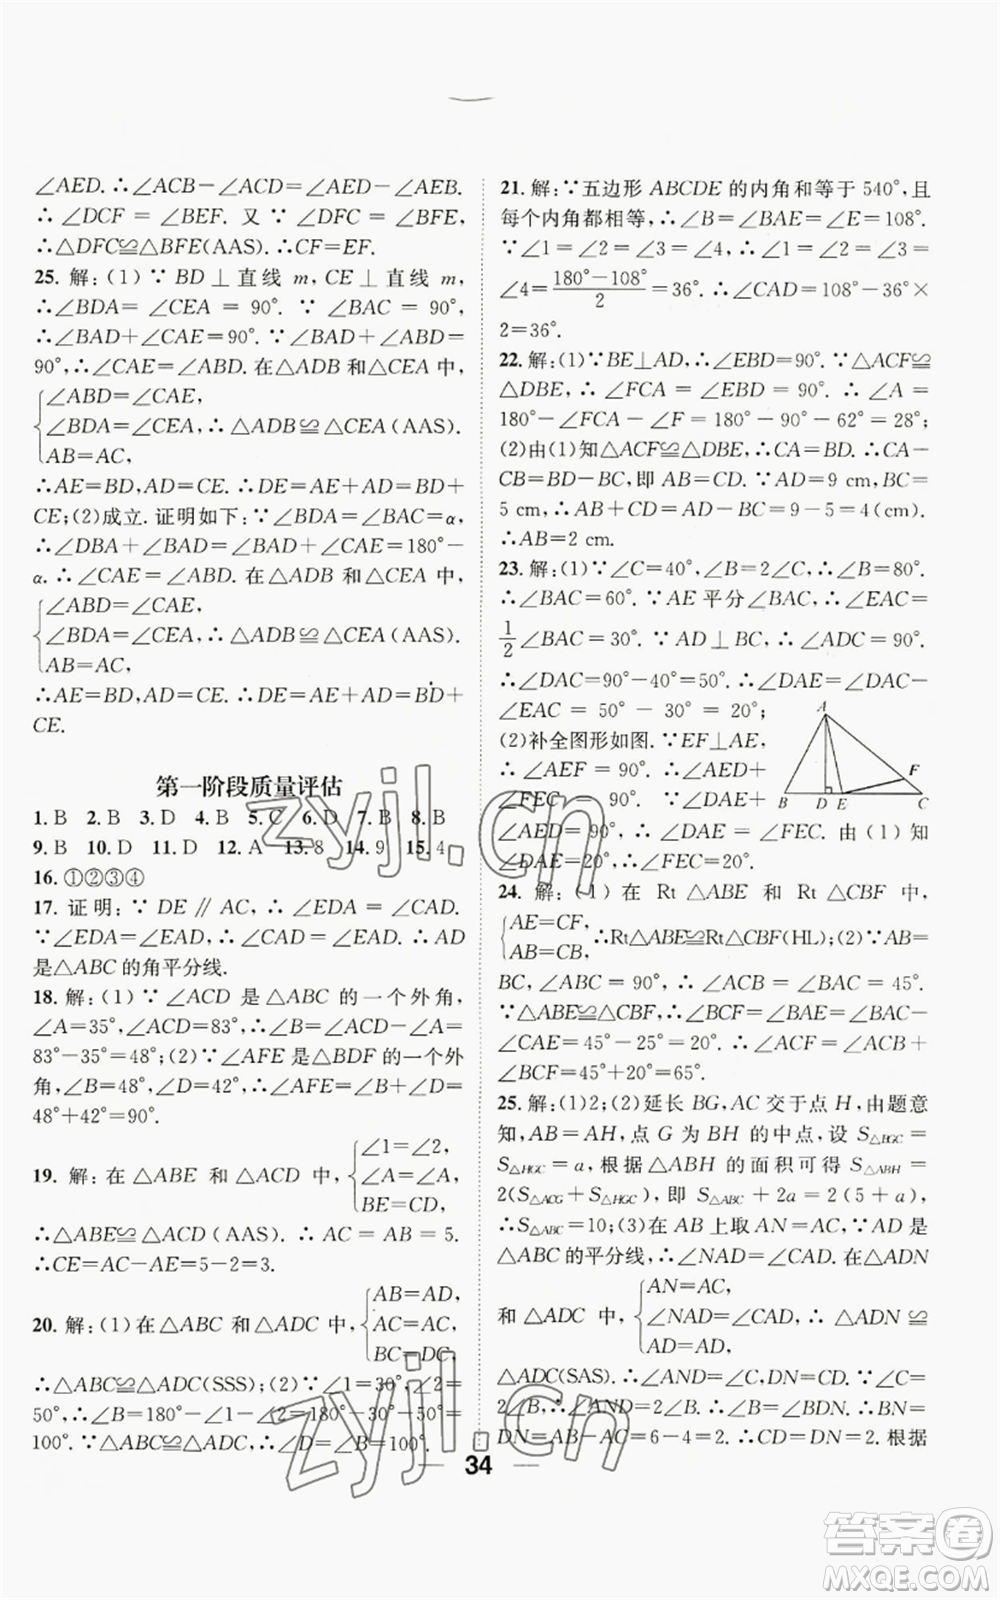 ∠AED. ∴∠ACB－∠ACD＝∠AED－∠AEB.
∴ ∠DCF ＝ ∠BEF. 又 ∵ ∠DFC ＝ ∠BFE,
∴△DFC≌△BFE(AAS). ∴CF＝EF.
25. 解:(1) ∵ BD⊥直线 m,CE⊥直线 m,
∴∠BDA＝∠CEA ＝ 90°. ∵ ∠BAC ＝ 90°,
∴∠BAD＋∠CAE＝90°. ∵∠BAD＋∠ABD＝
90°,∴∠CAE＝∠ABD. 在△ADB 和△CEA 中,
∠ABD＝∠CAE,
∠BDA＝∠CEA,∴ △ADB≌△CEA(AAS).
AB＝AC,
∴AE＝BD,AD＝CE. ∴DE＝AE＋AD＝BD＋
CE;(2)成立. 证明如下:∵∠BDA＝∠BAC＝α,
∴ ∠DBA ＋ ∠BAD＝∠BAD＋∠CAE＝180°－
α. ∴∠CAE＝∠ABD. 在△ADB 和△CEA 中,
∠ABD＝∠CAE,
∠BDA＝∠CEA,∴ △ADB≌△CEA(AAS).
AB＝AC,
∴AE＝BD,AD＝CE. ∴DE＝AE＋AD＝BD＋
CE.
第一阶段质量评估
1. B 2. B 3. D 4. B 5. C 6. D 7. B 8. B
9. B 10. D 11. D 12. A 13. 8 14. 9 15. 4
16. ①②③④
17. 证明:∵ DE∥AC,∴ ∠EDA ＝ ∠CAD.
∵∠EDA＝∠EAD,∴∠CAD＝∠EAD. ∴AD
是△ABC 的角平分线.
18. 解:(1)∵∠ACD 是△ABC 的一个外角,
∠A＝35°,∠ACD＝83°,∴∠B＝∠ACD－∠A＝
83°－35°＝48°;(2)∵∠AFE 是△BDF 的一个外
角,∠B＝48°,∠D＝42°,∴∠AFE＝∠B＋∠D＝
48°＋42°＝90°.
∠1＝∠2,
19. 解:在 △ABE 和 △ACD 中, ∠A＝∠A,
BE＝CD,
∴△ABE≌△ACD(AAS). ∴ AC ＝ AB ＝ 5.
∴CE＝AC－AE＝5－2＝3.
AB＝AD,
20. 解:(1)在△ABC 和△ADC 中, AC＝AC,
BC＝DC,
∴△ABC≌△ADC(SSS);(2)∵∠1＝30°,∠2＝
50°,∴∠B＝180°－∠1－∠2＝180°－30°－50°＝
100°. ∵△ABC≌△ADC,∴∠D＝∠B＝100°.
21. 解:∵五边形 ABCDE 的内角和等于 540°,且
每个内角都相等,∴∠B＝∠BAE＝∠E＝108°.
∵∠1＝∠2＝∠3＝∠4,∴∠1＝∠2＝∠3＝
∠4＝(180°－108°)/2＝36°. ∴∠CAD＝108°－36°×
2＝36°.
22. 解:(1)∵BE⊥AD,∴∠EBD＝90°. ∵△ACF≌
△DBE,∴∠FCA ＝∠EBD ＝ 90°. ∴ ∠A ＝
180°－∠FCA－∠F＝180°－90°－62°＝28°;
(2)由(1)知△ACF≌△DBE,∴CA＝BD. ∴CA－
CB＝BD－BC,即 AB＝CD. ∵AD＝9 cm,BC＝
5 cm,∴AB＋CD＝AD－BC＝9－5＝4(cm).
∴AB＝2 cm.
23. 解:(1)∵∠C＝40°,∠B＝2∠C,∴∠B＝80°.
∴∠BAC＝60°. ∵AE 平分∠BAC,∴∠EAC＝
1/2∠BAC＝30°. ∵AD⊥BC,∴∠ADC＝90°.
∴∠DAC＝90°－40°＝50°. ∴∠DAE＝∠DAC－
∠EAC ＝ 50° － 30° ＝ 20°;
(2)补全图形如图. ∵EF⊥AE,
∴ ∠AEF ＝ 90°. ∴ ∠AED＋
∠FEC ＝ 90°. ∵ ∠DAE＋
∠AED＝90°,∴∠DAE＝∠FEC. 由 (1) 知
∠DAE＝20°,∴∠FEC＝20°.
A
F
B D E C
24. 解:(1) 在 Rt △ABE 和 Rt △CBF 中,
AE＝CF,
AB＝CB, ∴Rt△ABE≌Rt△CBF(HL);(2)∵AB＝
BC,∠ABC＝90°,∴∠ACB＝∠BAC＝45°.
∵△ABE≌△CBF,∴∠BCF＝∠BAE＝∠BAC－
∠CAE＝45°－25°＝20°. ∴∠ACF＝∠ACB＋
∠BCF＝45°＋20°＝65°.
25. 解:(1)2;(2)延长 BG,AC 交于点 H,由题意
知,AB＝AH,点 G 为 BH 的中点,设 S△BGC＝
S△HGC＝a,根据△ABH 的面积可得 S△ABH＝
2(S△ACG＋S△HGC),即 S△ABC＋2a＝2(5＋a),
∴S△ABC＝10;(3)在 AB 上取 AN＝AC,∵AD 是
△ABC 的平分线,∴∠NAD＝∠CAD. 在△ADN
AN＝AC,
和 △ADC 中, ∠NAD＝∠CAD,∴ △ADN ≌
AD＝AD,
△ADC(SAS). ∴∠AND＝∠C,DN＝CD. ∵∠C＝
2∠B,∴∠AND＝2∠B. ∴∠B＝∠BDN. ∴BN＝
DN＝AB－AN＝6－4＝2. ∴CD＝DN＝2. 根据
34
zyjl.cn
zyjl.cn
答案圈
MXQE.COM